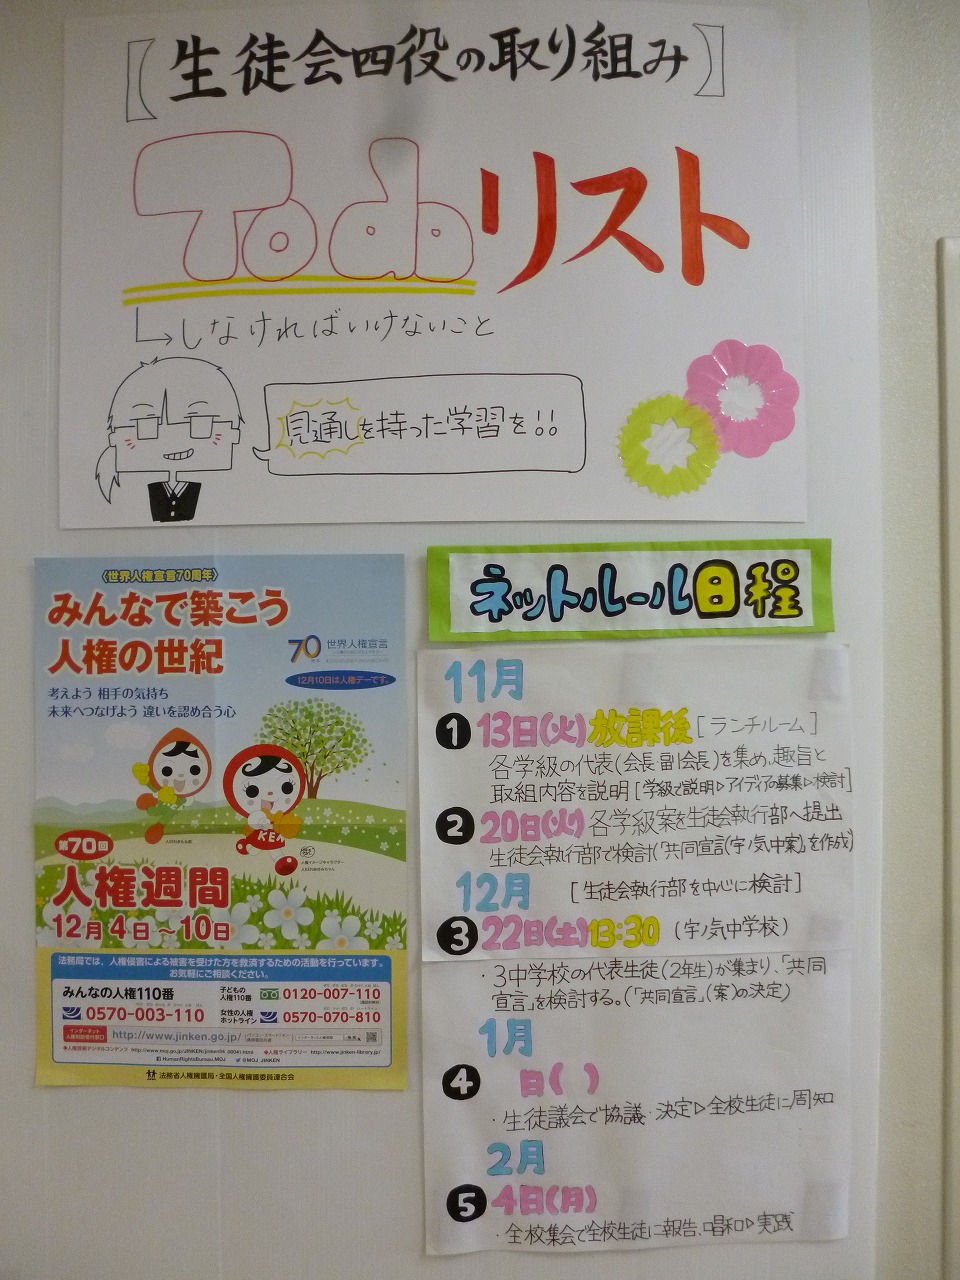 【生徒会四役の取り組み】
Todoリスト
↳しなければいけないこと
見通しを持った学習を!!
〈世界人権宣言70周年〉
みんなで築こう
人権の世紀
考えよう 相手の気持ち
未来へつなげよう 違いを認め合う心
70
世界人権宣言
12月10日は人権デーです。
第70回
人権週間
12月4日～10日
法務局では、人権侵害による被害を受けた方を救済するための活動を行っています。
お気軽にご相談ください。
みんなの人権110番
0570-003-110
子どもの
人権110番
0120-007-110
女性の人権
ホットライン
0570-070-810
インターネット
人権相談受付窓口
http://www.jinken.go.jp/
人権ライブラリー http://www.jinken-library.jp/
HumanRightsBureau.MOJ @MOJ_JINKEN
法務省人権擁護局・全国人権擁護委員連合会
ネットルール日程
11月
1 13日(火)放課後[ランチルーム]
各学級の代表(会長・副会長)を集め、趣旨と
取組内容を説明[学級で説明▷アイディアの募集▷検討]
2 20日(火)各学級案を生徒会執行部へ提出
生徒会執行部で検討(「共同宣言(宇ノ気中案)」を作成)
12月 [生徒会執行部を中心に検討]
3 22日(土)13:30 (宇ノ気中学校)
・3中学校の代表生徒(2年生)が集まり、「共同
宣言」を検討する。(「共同宣言」(案)の決定)
1月
4 日( )
・生徒議会で協議・決定▷全校生徒に周知
2月
5 4日(月)
・全校集会で全校生徒に報告、唱和▷実践